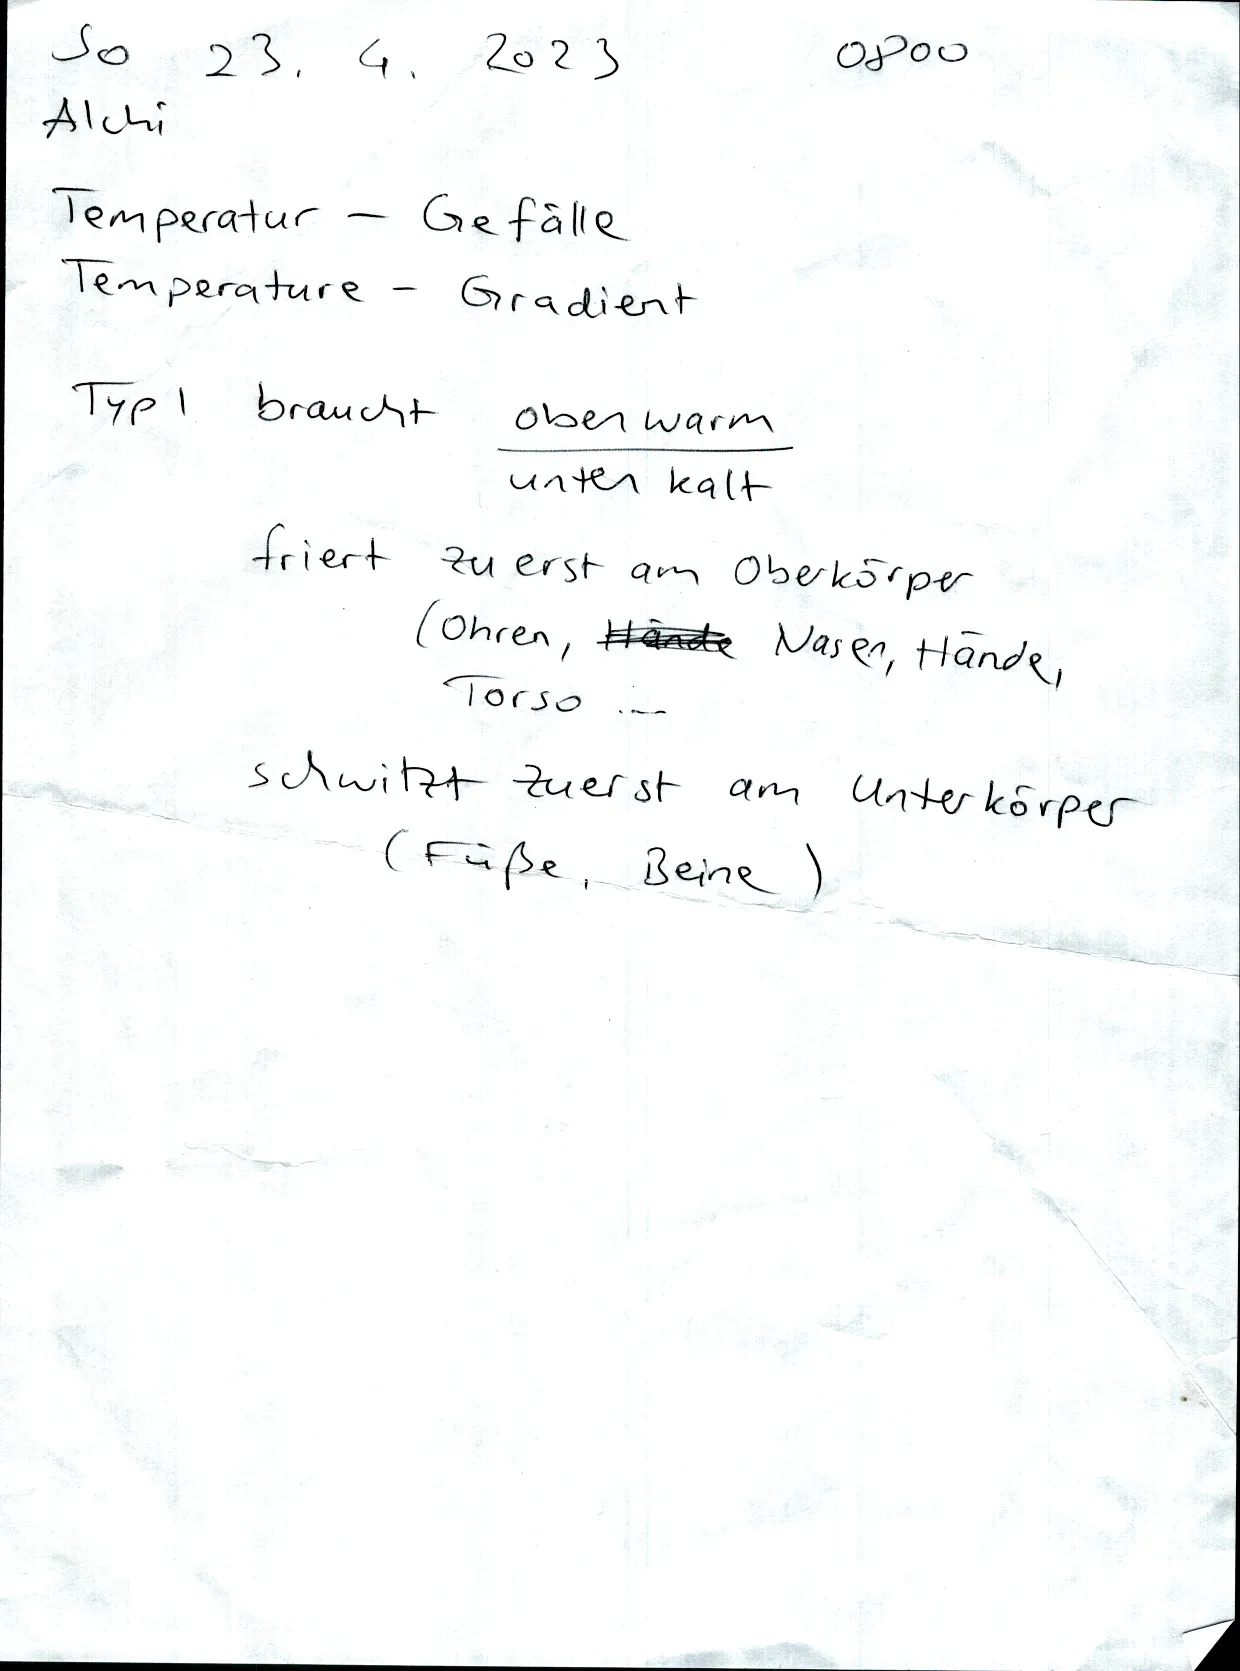 So 23. 4. 2023 0800
Alchi
Temperatur - Gefälle
Temperature - Gradient
Typ 1 braucht oben warm
unten kalt
friert zu erst am Oberkörper
(Ohren, Hände Nasen, Hände,
Torso ...
schwitzt zuerst am Unterkörper
(Füße, Beine)